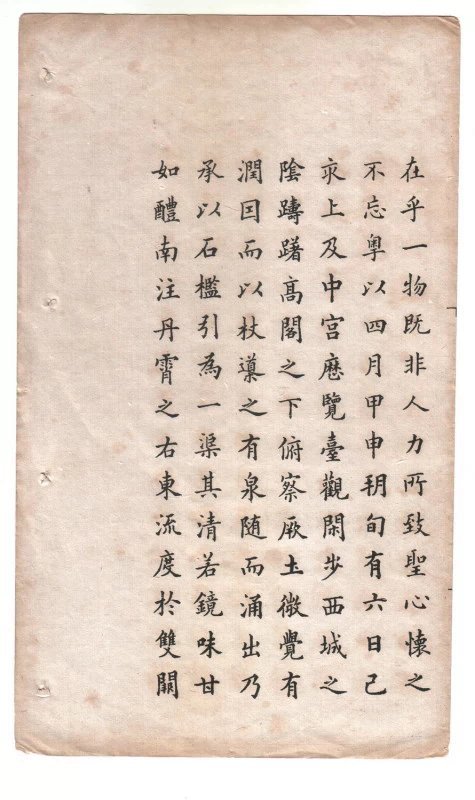 在乎一物既非人力所致聖心懷之
不忘粤以四月甲申朔旬有六日己
亥上及中宫歷覽臺觀閑步西城之
陰躊躇髙閣之下俯察厥土微覺有
潤因而以杖導之有泉随而涌出乃
承以石檻引為一渠其清若鏡味甘
如醴南注丹霄之右東流度於雙闕